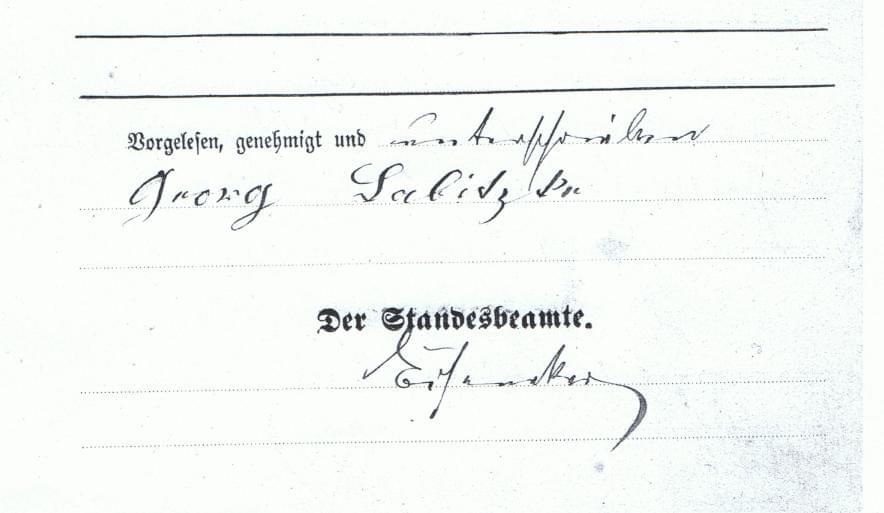 Vorgelesen, genehmigt und unterschrieben
Georg Labitzke
Der Standesbeamte.